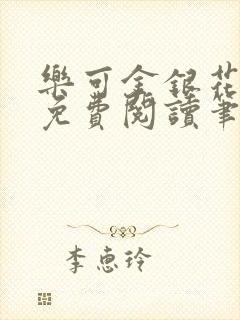 樂可金銀花
免費閱讀筆
李惠玲